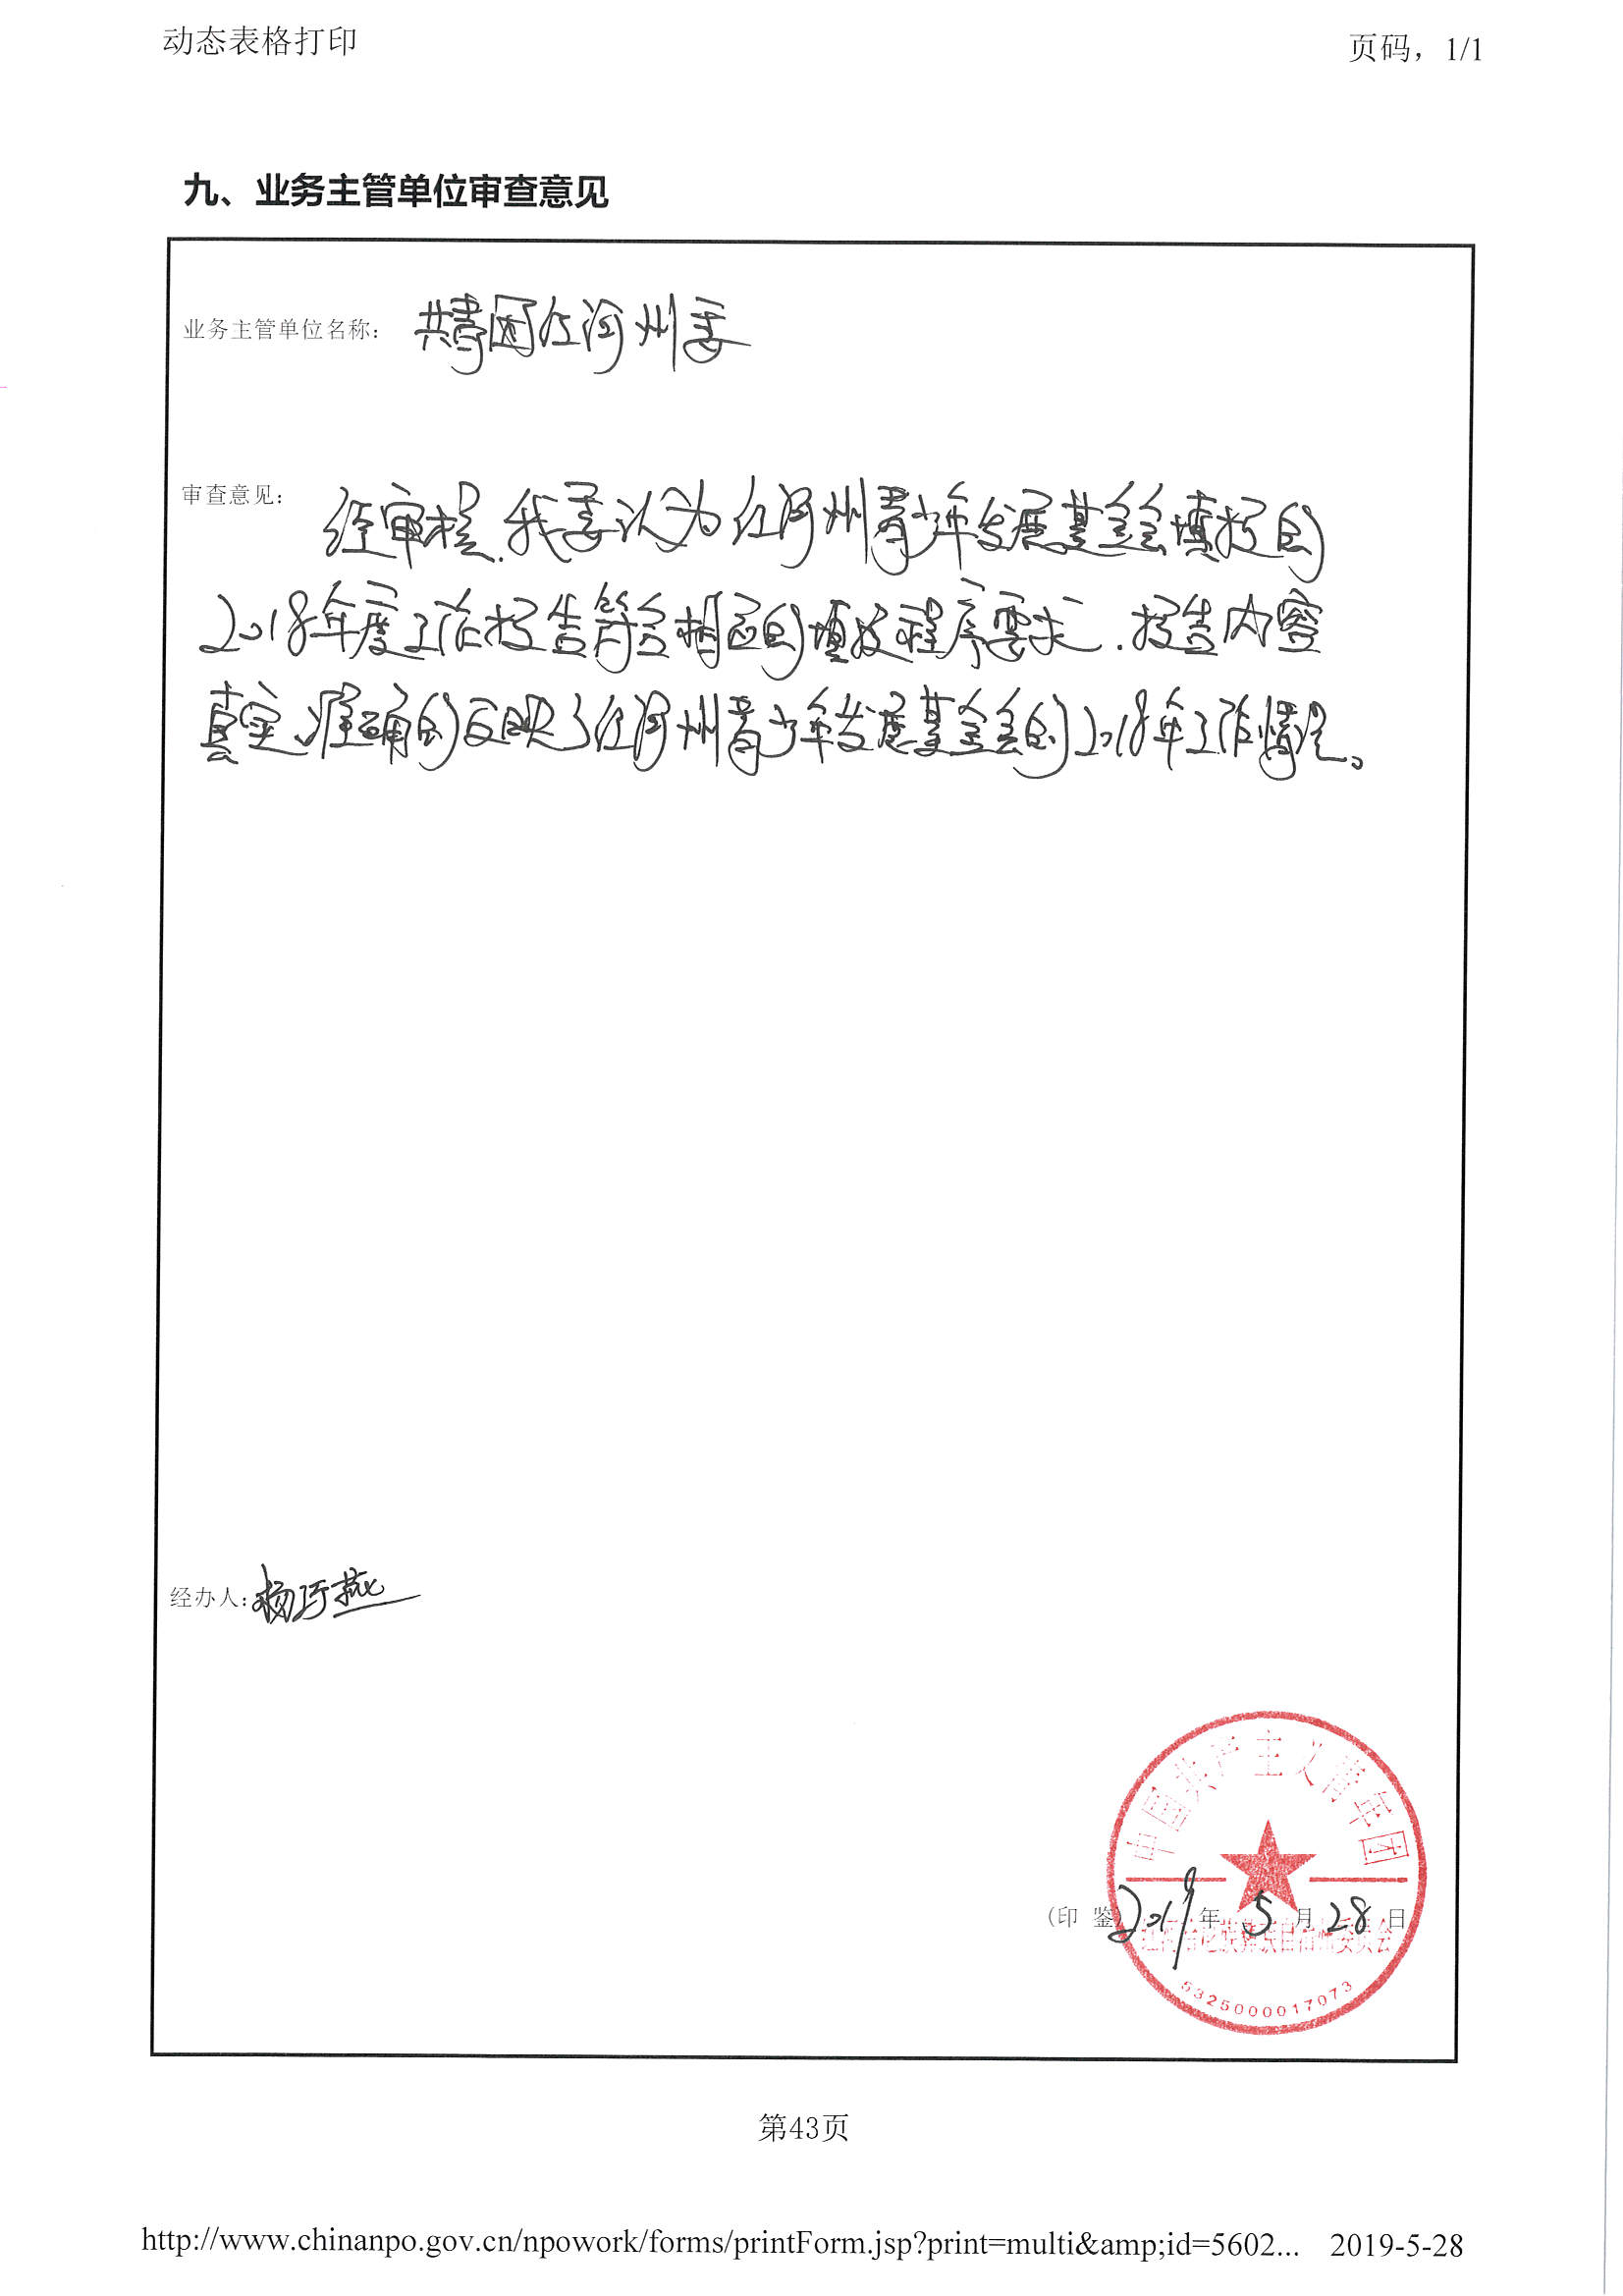 动态表格打印
页码，1/1
九、业务主管单位审查意见
业务主管单位名称：共青团红河州委
审查意见：经审核，我委认为红河州青少年发展基金会填报的
2018年度工作报告符合相应的填报程序要求，报告内容
真实、准确的反映了红河州青少年发展基金会的2018年工作情况。
经办人：杨巧燕
中国共产主义青年团
（印 鉴）2019年 5 月 28 日
红河哈尼族彝族自治州委员会
5325000017073
第43页
http://www.chinanpo.gov.cn/npowork/forms/printForm.jsp?print=multi&amp;id=5602... 2019-5-28